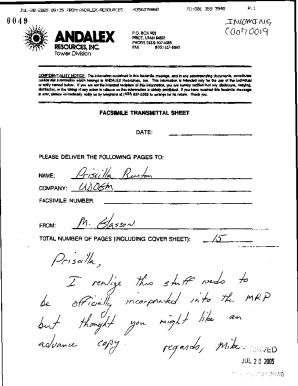 JUL-20-2005 09:15 FROM:ANDALEX RESOURCES
TO:801 359 3940
P.1
0049
INCOMING
C0070019
ANDALEX
RESOURCES, INC.
Tower Division
P.O. BOX 902
PRICE, UTAH 84501
PHONE (435) 637-5385
FAX (435) 637-8860
CONFIDENTIALITY NOTICE: The information contained in this facsimile message, and in any accompanying documents, constitutes
confidential information which belongs to ANDALEX Resources, Inc. This information is intended only for the use of the individual
or entity named below. If you are not the intended recipient of this information, you are hereby notified that any disclosure, copying,
distribution, or the taking of any action in reliance on this information is strictly prohibited. If you have received this facsimile message
in error, please immediately notify us by telephone at to arrange for its return. Thank you.
FACSIMILE TRANSMITTAL SHEET
DATE:
PLEASE DELIVER THE FOLLOWING PAGES TO:
NAME: Priscilla Burton
COMPANY: UDOGM
FACSIMILE NUMBER:
FROM: M. Glasson
TOTAL NUMBER OF PAGES (INCLUDING COVER SHEET): 15
Priscilla,
I realize this stuff needs to
be officially incorporated into the MRP
but thought you might like an
advance copy
regards, Mike
JUL 20 2005